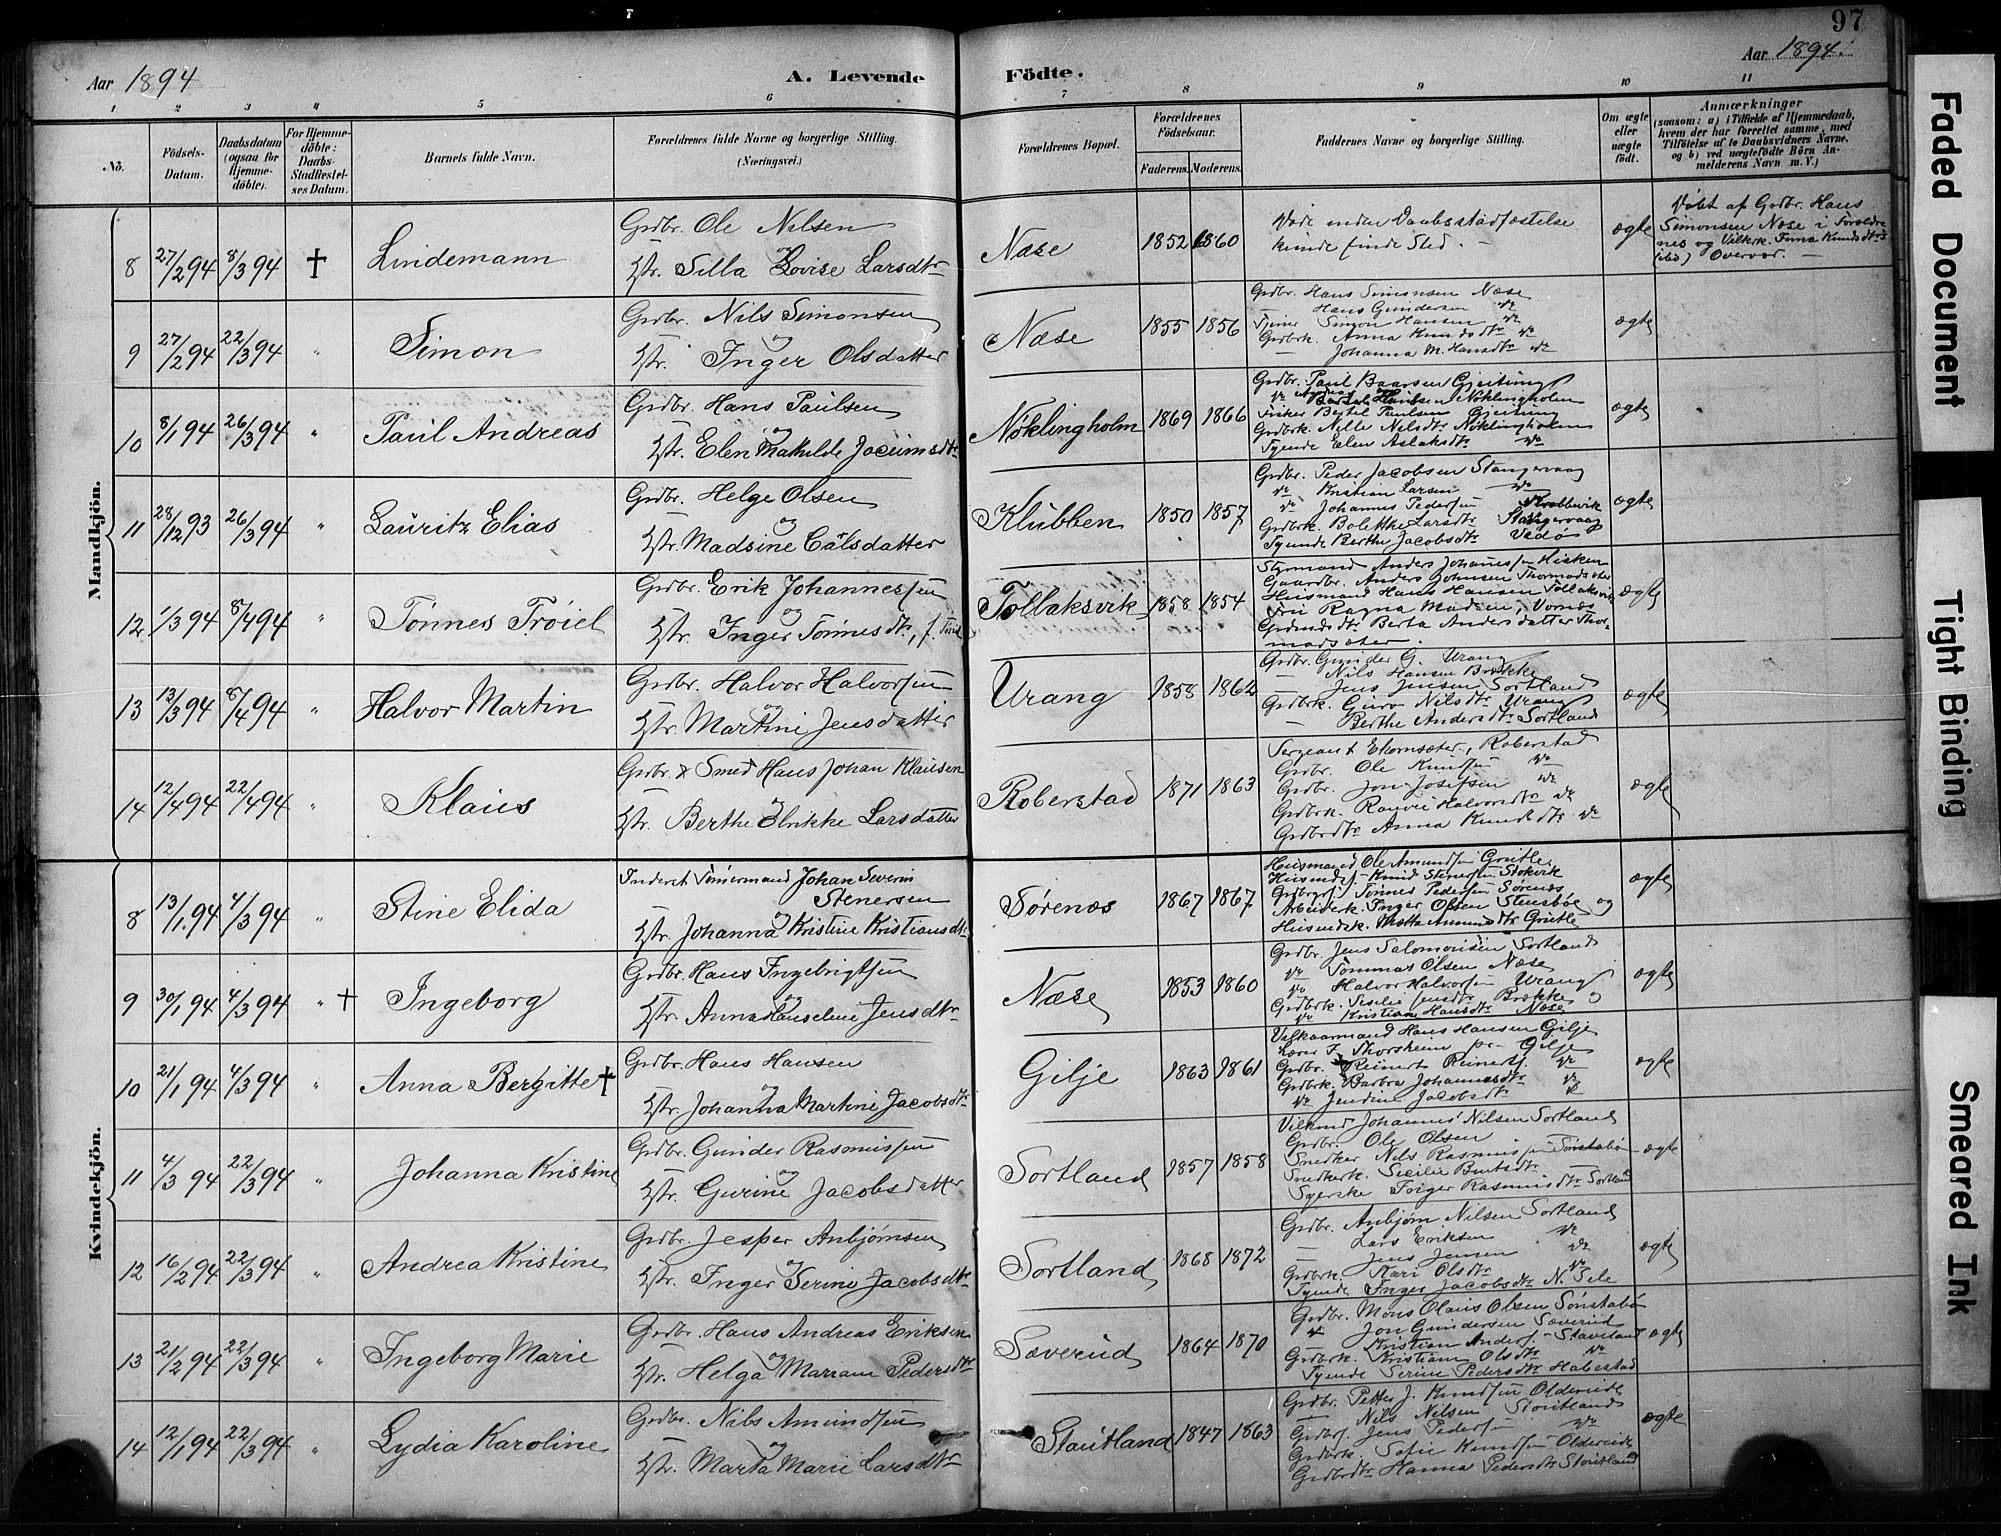 97
Aar 1894
A. Levende
Födte.
Aar 1894.
1 2 3 4 5 6 7 8 9 10 11
No.
Födsels-Datum.
Daabsdatum (ogsaa for Hjemme-döbte).
For Hjemme-döbte: Daabs-Stadfæstel-ses Datum.
Barnets fulde Navn.
Forældrenes fulde Navne og borgerlige Stilling. (Næringsvei.)
Forældrenes Bopæl.
Forældrenes Födselsaar.
Faderens. Moderens.
Faddernes Navne og borgerlige Stilling.
Om ægte eller uægte födt.
Anmærkninger
(saasom: a) i Tilfælde af Hjemmedaab, hvem der har forrettet samme, med Tilföielse af to Daabsvidners Navne, og b) ved uægtefödte Börn An-melderens Navn m. V.)
Mandkjön.
8 27/2 94 8/3 94 † Lindemann
Grdbr. Ole Nilsen
og
Hstr. Silla Lovise Larsdtr
Næse 1852 1860
Døde inden Daabsstadfæstelse
kunde finde Sted. -
ægte
Døbt af Grdbr. Hans
Simonsen Næse i Forældre-
nes og Vilkrk. Anna Knudsdtrs
(ibd) Overvær. -
9 27/2 94 22/3 94 " Simon
Grdbr. Nils Simonsen
og
Hstr. Inger Olsdatter
Næse 1855 1856
Grdbr. Hans Simonsen Næse
— Hans Gundersen do
Tjener Simon Hansen do
Grdbrk. Anna Knudsdtr do
— Johanna M. Hansdtr do
ægte
10 8/1 94 26/3 94 " Paul Andreas
Grdbr. Hans Paulsen
og
Hstr. Elen Mathilde Jocumsdtr
Nöklingholm 1869 1866
Grdbr. Paul Baarsen Gjeitung
Nöklingholm
Fisker Bertel Paulsen Gjeitung
Grdbrk. Nille Nilsdtr Nöklingholm
Tyende Elen Aslaksdtr do
ægte
11 28/12 93 26/3 94 " Lauritz Elias
Grdbr. Helge Olsen
og
Hstr. Madsine Calsdatter
Klubben 1850 1857
Grdbr. Peder Jacobsen Stangervaag
do Kristian Larsen do
do Johannes Pedersen
Grdbrk. Bolette Larsdtr Stangervaag
Tyende Berthe Jacobsdtr Vedø
ægte
12 1/3 94 8/4 94 " Tønnes Trøiel
Grdbr. Erik Johannessen
og
Hstr. Inger Tönnesdtr,
Tollaksvik 1858 1854
Styrmand Anders Johannessen
Gaardbr. Anders Johnsen Thormodsæter
Husmand Hans Hansen Tollaksvik
Fru Ragna Madsen, Vornes
Berta Andersdatter Thor-
modsæter.
ægte
13 13/3 94 8/4 94 " Halvor Martin
Grdbr. Halvor Halvorsen
og
Hstr. Martine Jensdatter
Urang 1858 1862
Grdbr. Gunder G. Urang
— Nils Hansen Brække
— Jens Jensen Sortland
Grdbrk. Guro Nilsdtr Urang
— Berthe Andersdtr Sortland
ægte
14 12/4 94 22/4 94 " Klaus
Grdbr. & Smed Hans Johan Klausen
og
Hstr. Berthe Elrikke Larsdatter
Roberstad 1871 1863
Sergeant Ekornsæter, Roberstad
Grdbr. Ole Knudsen do
Grdbr. Jon Josefsen do
Grdbrk. Halvorsdtr do
Grdbrdtr Anna Knudsdtr do
ægte
Kvindekjön.
8 13/1 94 4/3 94 " Stine Elida
Inderst Tömmermand Johan Severin
Stenersen
og
Hstr. Johanna Kristine Kristiansdtr.
Sørenæs 1867 1867
Husmand Ole Amundsen Grutle
Knud Stenersen Stokvik
Tönnes Pedersen Sørenæs
Arbeiderk. Inger Olsen Stensbøe og
Husmdsk. Amundsdtr Grutle
ægte
9 30/1 94 4/3 94 " † Ingeborg
Grdbr. Hans Ingebrigtsen
og
Hstr. Anna Hanseline Jensdtr
Næse 1853 1860
Grdbr. Jens Salomonsen Sortland
do Tommas Olsen Næse
do Halvor Halvorsen Urang
Grdbrk. Jensdtr Brække og
do Kristiane Hansdtr Næse
ægte
10 21/1 94 4/3 94 " Anna Bergitte †
Grdbr. Hans Hansen
og
Hstr. Johanna Martine Jacobsdtr
Gilje 1863 1861
Vilkaarmand Hans Hansen Gilje
Lærer F. Thorsheim pr. Gilje
Grdbr. Reinert Reinerts. do
Grdbrk. Barbra Johannesdtr do
do Jendine Jacobsdtr do
ægte
11 4/3 94 22/3 94 " Johanna Kristine
Grdbr. Gunder Rasmussen
og
Hstr. Gurine Jacobsdatter
Sortland 1857 1858
Vilkmd Johannes Nilsen Sortland
Grdbr. Ole Olsen
Snedker Nils Rasmussen Sønstabø
Snedkerk. Secilie
Syerske Inger Rasmusdtr Sortland
ægte
12 16/2 94 22/3 94 " Andrea Kristine
Grdbr. Jesper Anbjørnsen
og
Hstr. Inger Serine Jacobsdtr
Sortland 1868 1872
Grdbr. Anbjørn Nilsen Sortland
— Lars Eriksen do
— Jens Jensen do
Grdbrk. Kari Olsdtr do
Tyende Inger Jacobsdtr N. Sele
ægte
13 21/2 94 22/3 94 " Ingeborg Marie
Grdbr. Hans Andreas Eriksen
og
Hstr. Helga Mariane Pedersdtr
Sæverud 1864 1870
Grdbr. Mons Olaus Olsen Sønstabø
do Jon Gundersen Sæverud
Kristian Anders. Staveland
Grdbrk. Kristiane Olsdtr do
Tyende Serine Pedersdtr Habestad
ægte
14 12/1 94 22/3 94 " Lydia Karoline
Grdbr. Nils Amundsen
og
Hstr. Marta Marie Larsdtr
Stautland 1847 1863
Grdbr. Petter J. Knudsen Oldereide
— Nils Nilsen Stoutland
Grdbrs. Jens Pedersen do
Grdbrk. Sofie Knudsen Oldereide
Grdbrdtr Hanna Pedersdtr Stoutland
ægte
Faded Document
Tight Binding
Smeared Ink